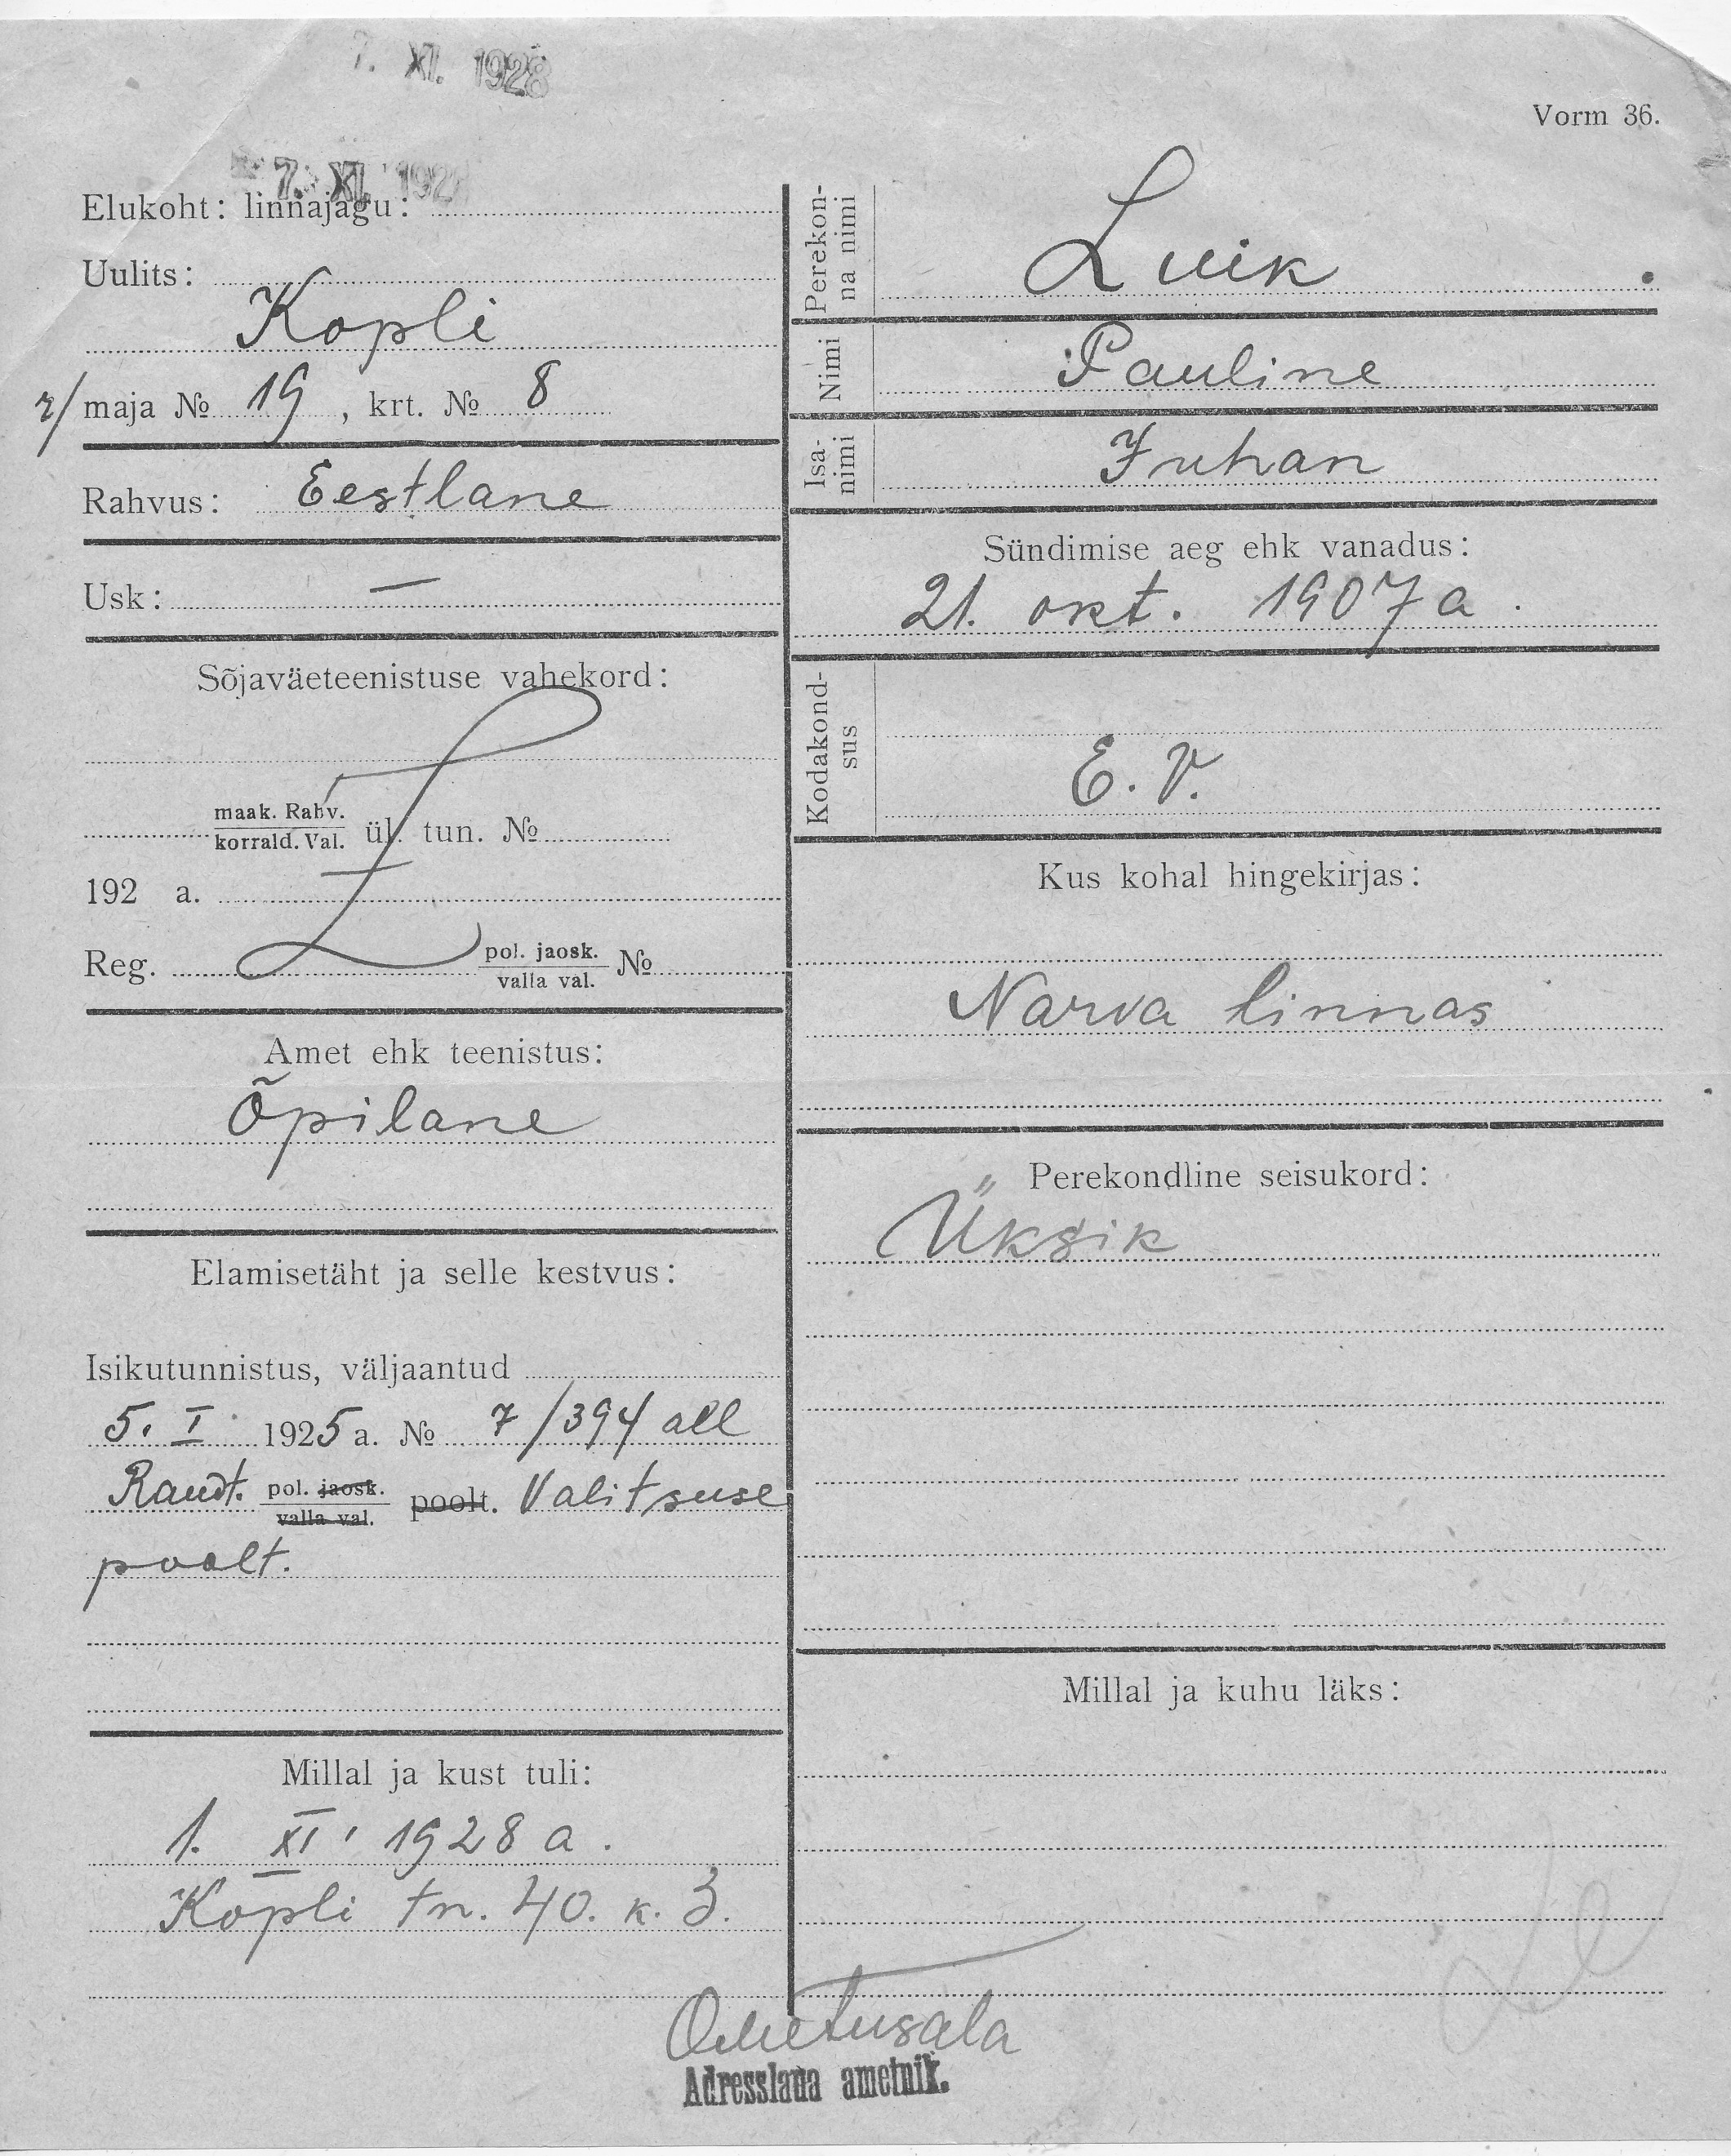 7. XI. 1928
Vorm 36.
7. XI. 192
Elukoht: linnajagu:
Uulits:
Kopli
r/ maja № 19, krt. № 8
Rahvus: Eestlane
Usk: —
Sõjaväeteenistuse vahekord:
maak. Rahv.
korrald. Val. ül. tun. №
192 a.
Reg. pol. jaosk. №
valla val.
Amet ehk teenistus:
Õpilane
Elamisetäht ja selle kestvus:
Isikutunnistus, väljaantud
5. I 1925 a. № 7/394 all
Raudt. pol. jaosk. poolt. Valitsuse
valla val.
poolt.
Millal ja kust tuli:
1. XI. 1928 a.
Kopli tn. 40. k. 3.
Perekon-
na nimi
Luik
Nimi
Pauline
Isa-
nimi
Juhan
Sündimise aeg ehk vanadus:
21. okt. 1907 a.
Kodakond-
sus
E. V.
Kus kohal hingekirjas:
Narva linnas
Perekondline seisukord:
Üksik
Millal ja kuhu läks:
Adresslaua ametnik.